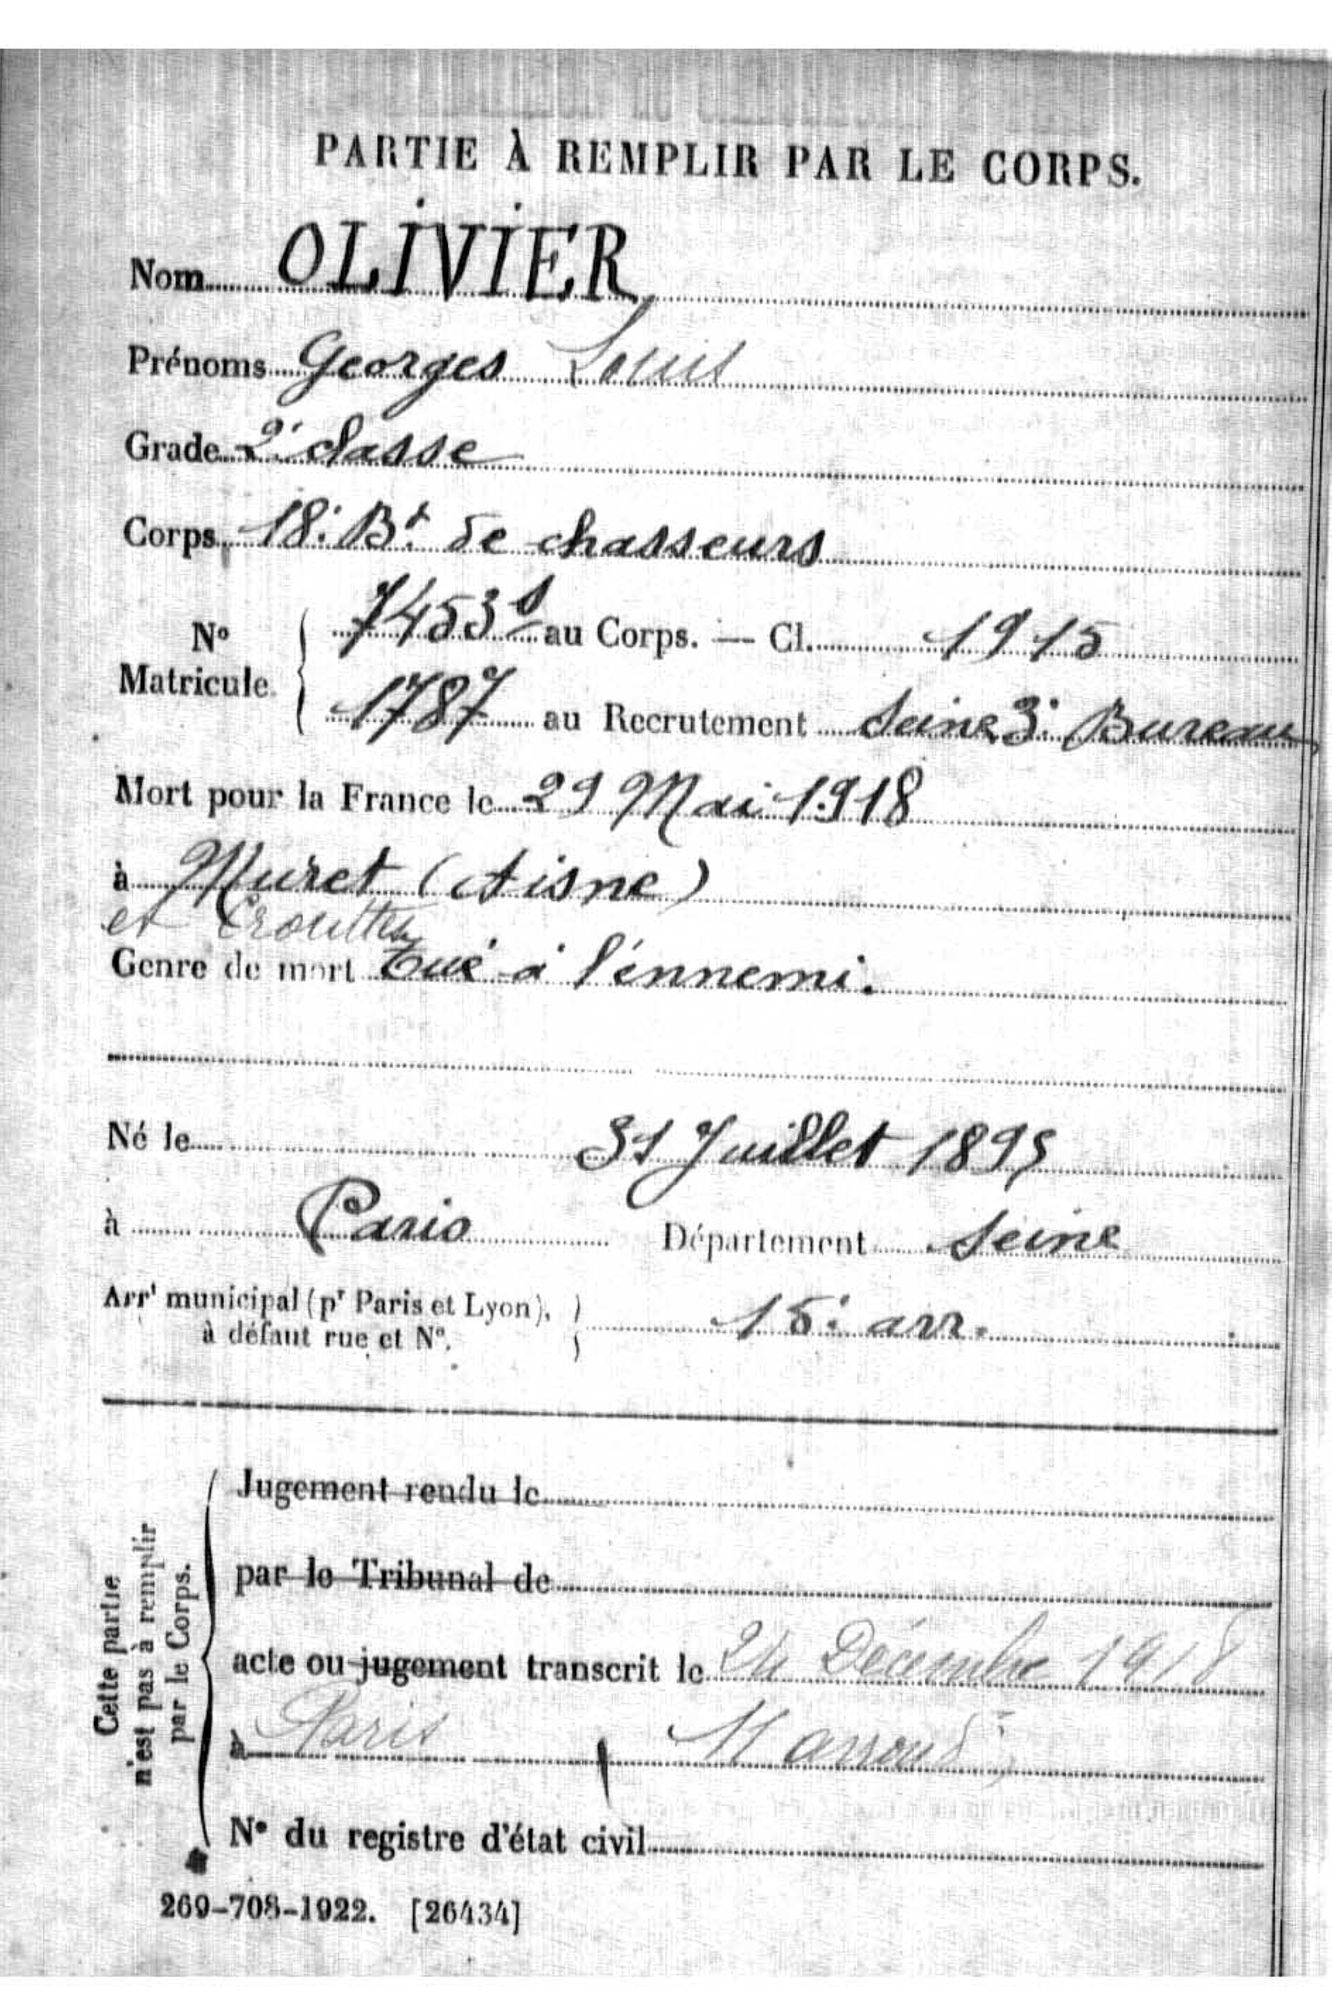 PARTIE À REMPLIR PAR LE CORPS.
Nom OLIVIER
Prénoms Georges Louis
Grade 2e classe
Corps 18e Bt de chasseurs
No Matricule { 7453s au Corps. — Cl. 1915
1787 au Recrutement Seine 3e Bureau
Mort pour la France le 29 Mai 1918
à Muret (Aisne)
et Crouttes
Genre de mort Tué à l'énnemi.
Né le 31 Juillet 1895
à Paris Département Seine
Arrt municipal (pr Paris et Lyon), à défaut rue et No. } 15e arr.
Cette partie n'est pas à remplir par le Corps.
Jugement rendu le
par le Tribunal de
acte ou jugement transcrit le 24 Décembre 1918
à Paris 11 arrond
No du registre d'état civil
269-708-1922. [26434]